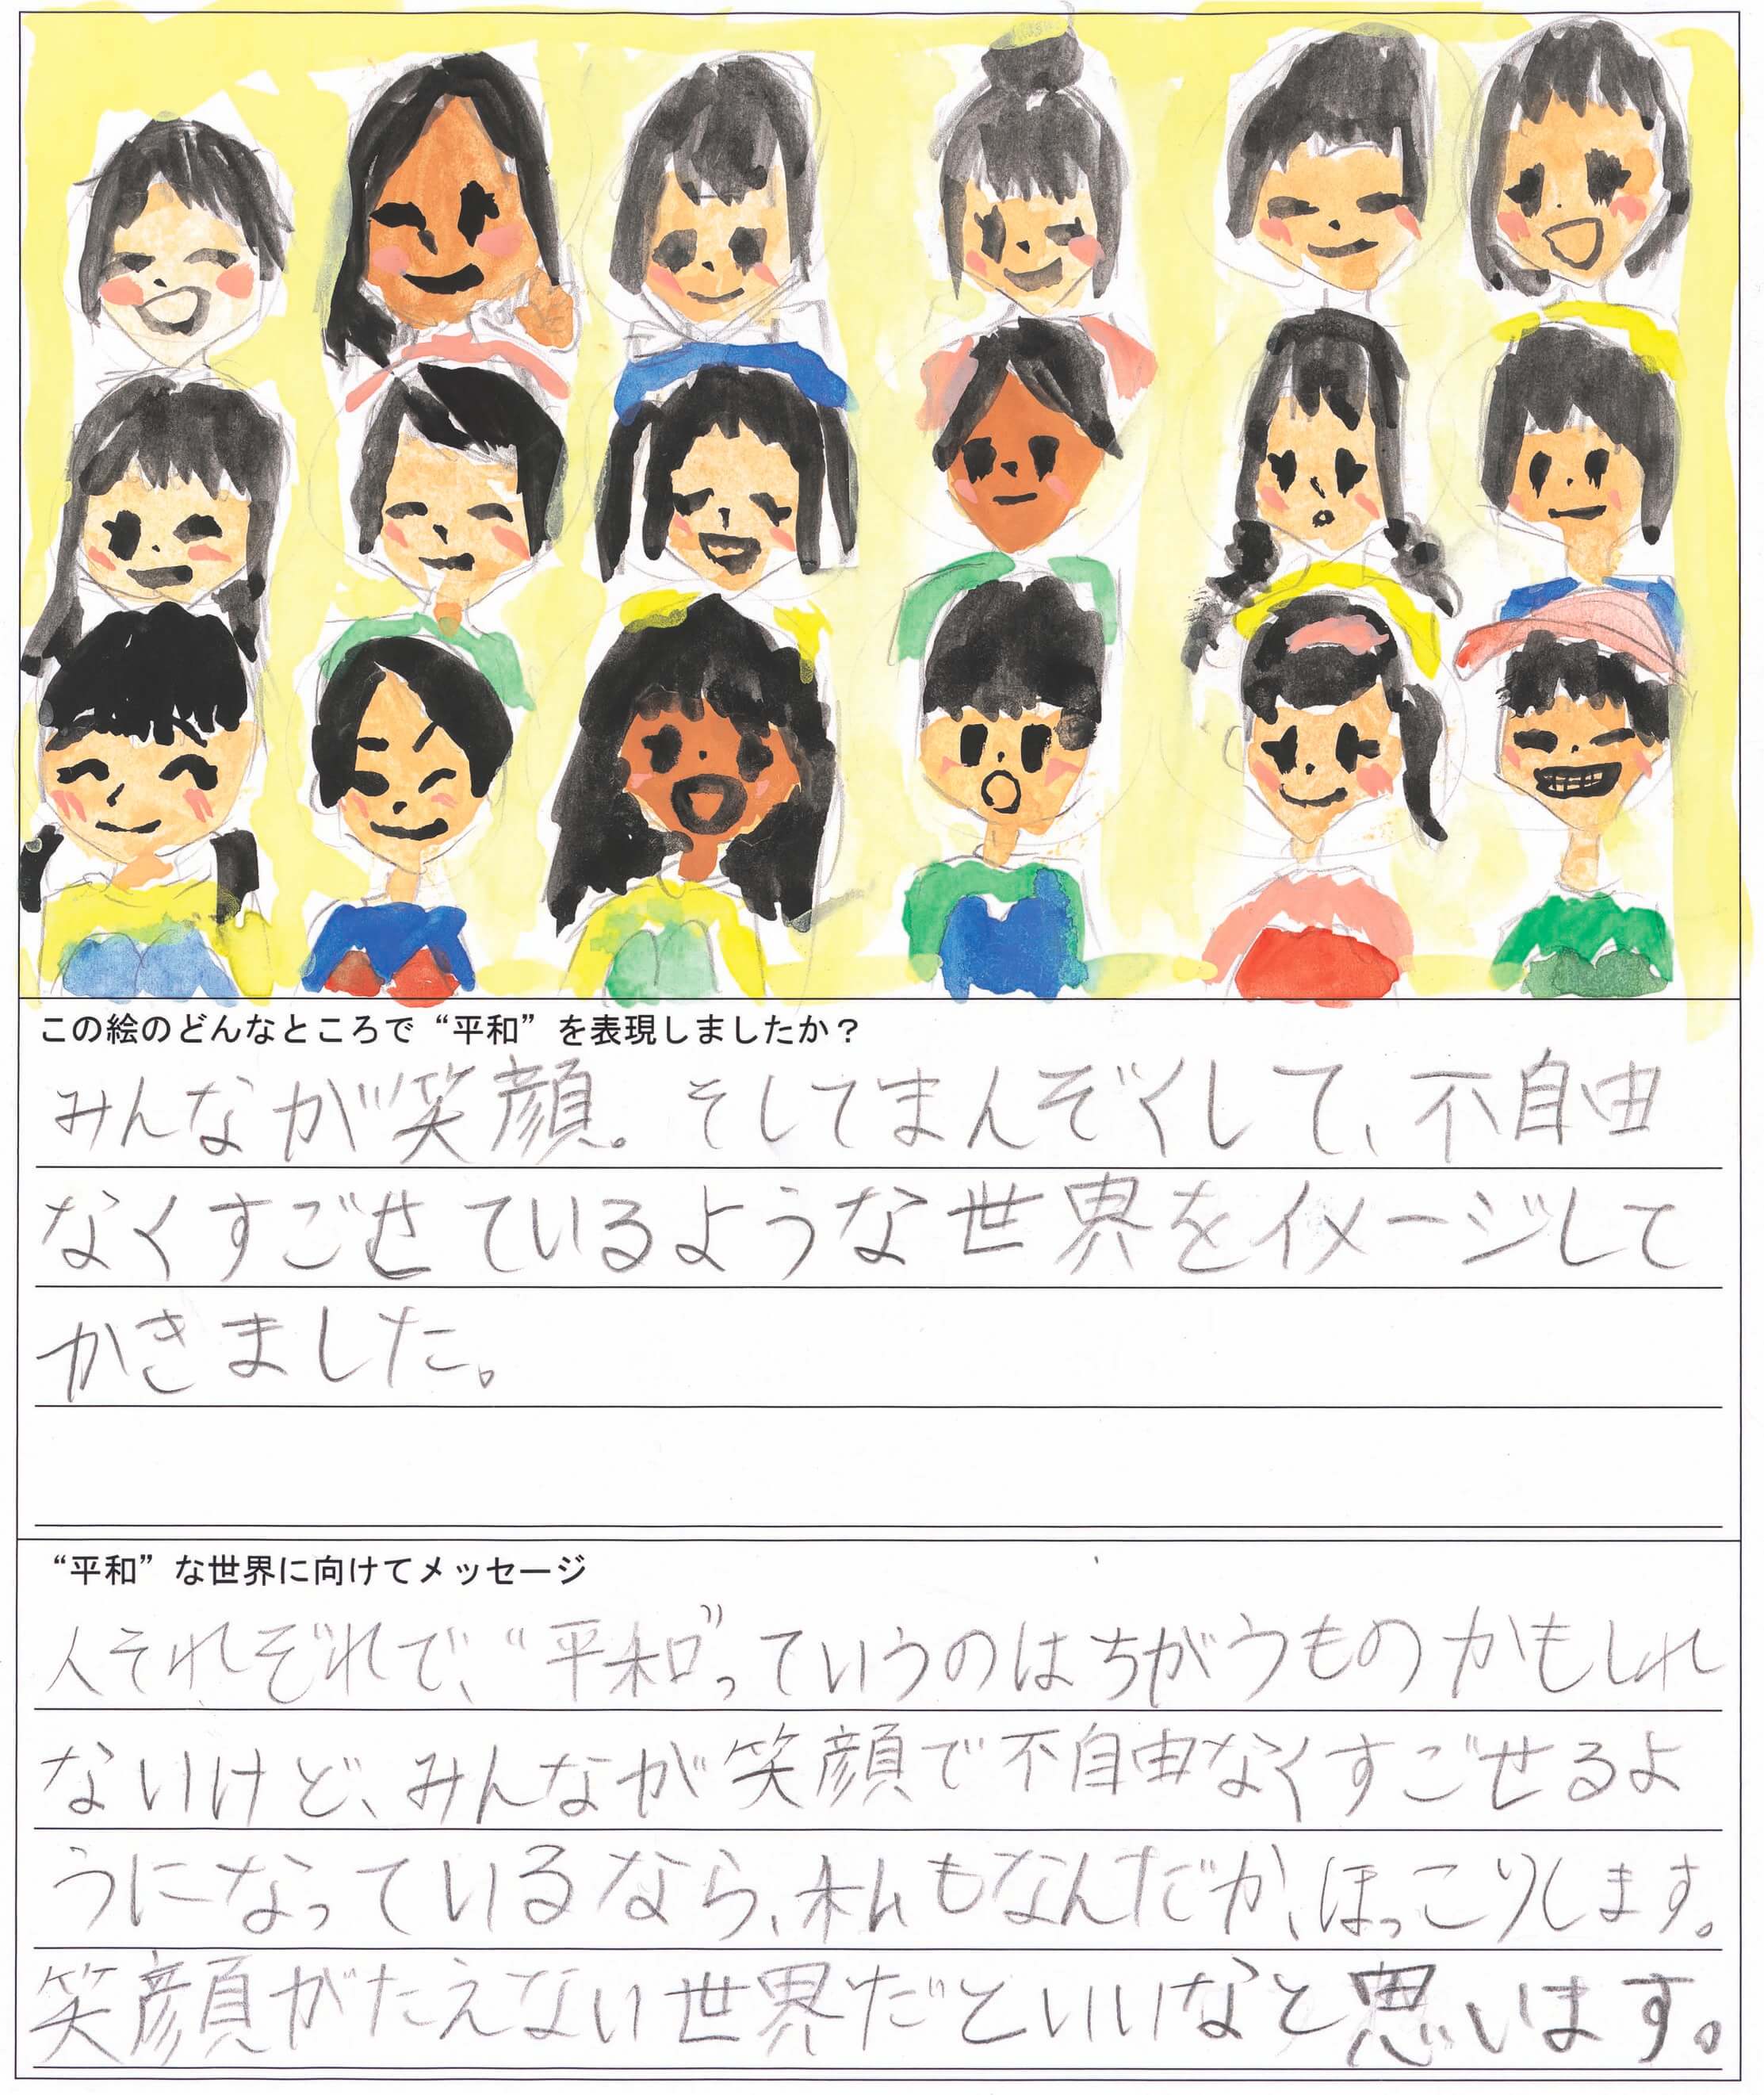 この絵のどんなところで“平和”を表現しましたか？
みんなが笑顔。そしてまんぞくして、不自由
なくすごせているような世界をイメージして
かきました。
“平和”な世界に向けてメッセージ
人それぞれで、“平和”っていうのはちがうものかもしれ
ないけど、みんなが笑顔で不自由なくすごせるよ
うになっているなら、私もなんだか、ほっこりします。
笑顔がたえない世界だといいなと思います。